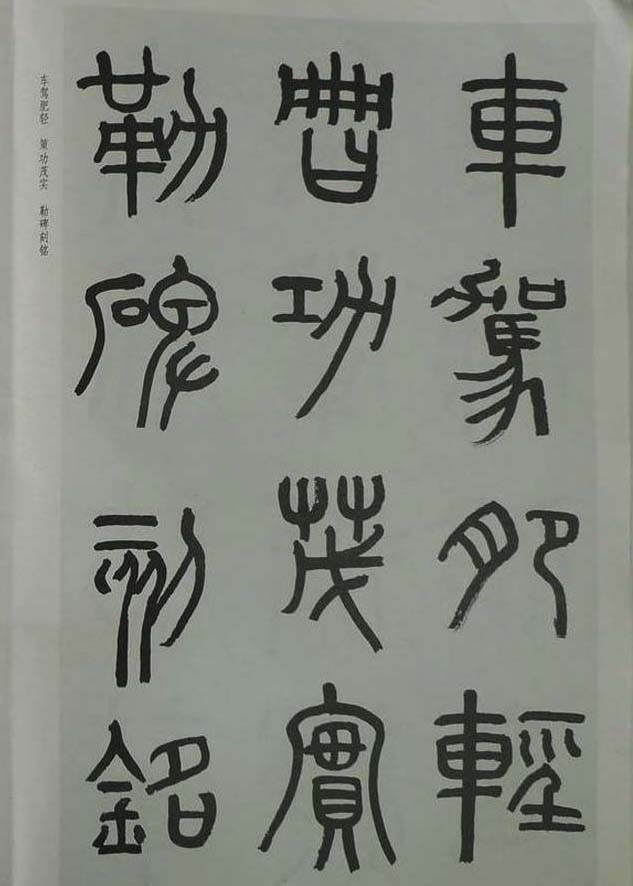 車駕肥輕
策功茂實
勒碑刻銘
车驾肥轻　策功茂实　勒碑刻铭